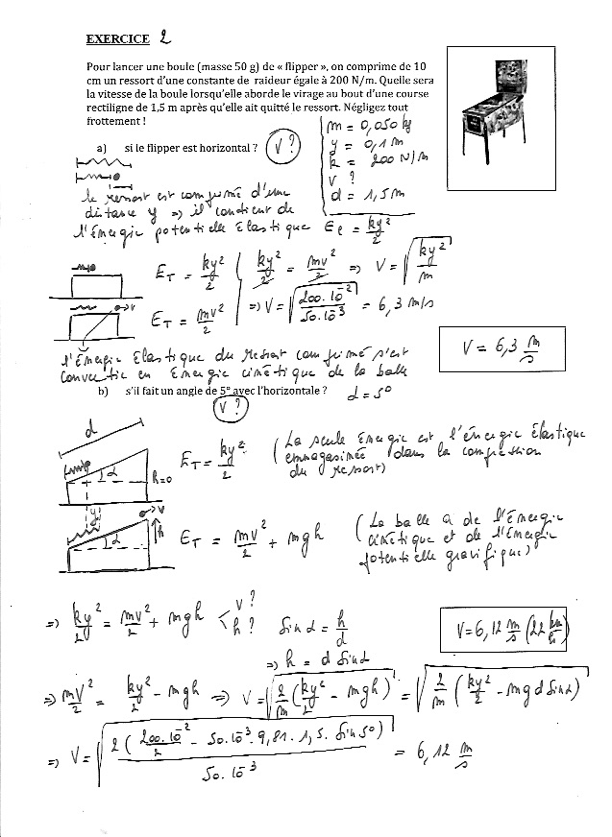 EXERCICE 2
Pour lancer une boule (masse 50 g) de « flipper », on comprime de 10
cm un ressort d'une constante de raideur égale à 200 N/m. Quelle sera
la vitesse de la boule lorsqu'elle aborde le virage au bout d'une course
rectiligne de 1,5 m après qu'elle ait quitté le ressort. Négligez tout
frottement !
a) si le flipper est horizontal ? V ?
m = 0,050 kg
y = 0,1 m
k = 200 N/m
v ?
d = 1,5 m
le ressort est comprimé d'une
distance y => il contient de
l'énergie potentielle élastique Ee = ky²/2
E_T = ky²/2
E_T = mv²/2
ky²/2 = mv²/2 => V = √(ky²/m)
=> V = √(200.10⁻²/50.10⁻³) = 6,3 m/s
l'énergie élastique du ressort comprimé s'est
convertie en énergie cinétique de la balle
V = 6,3 m/s
b) s'il fait un angle de 5° avec l'horizontale ? α = 5°
V ?
d
α
h=0
E_T = ky²/2 (La seule énergie est l'énergie élastique
emmagasinée dans la compression
du ressort)
y
v
α
h
E_T = mv²/2 + mgh (La balle a de l'énergie
cinétique et de l'énergie
potentielle gravifique)
=> ky²/2 = mv²/2 + mgh < v ? h ? Sin α = h/d
=> h = d Sin α
V = 6,12 m/s (22 km/h)
=> mv²/2 = ky²/2 - mgh => V = √(2/m (ky²/2 - mgh)) = √(2/m (ky²/2 - mgd Sin α))
=> V = √(2(200.10⁻²/2 - 50.10⁻³.9,81.1,5.Sin 5°)/50.10⁻³) = 6,12 m/s